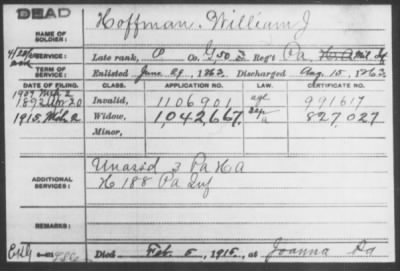 DEAD
NAME OF SOLDIER: Hoffman, William J
SERVICE: Late rank, P Co. G 50 Reg't Pa. Mil Inf
TERM OF SERVICE: Enlisted June 29, 1863, Discharged Aug. 15, 1863
DATE OF FILING. CLASS. APPLICATION NO. LAW. CERTIFICATE NO.
1892 Apr 20 Invalid, 1106901 age 991617
1915 Mch 2 Widow, 1,042,667 827,027
Minor,
ADDITIONAL SERVICES: Unassd 3 Pa H A
H 188 Pa Inf
REMARKS:
Died Feb. 5, 1915, at Joanna Pa